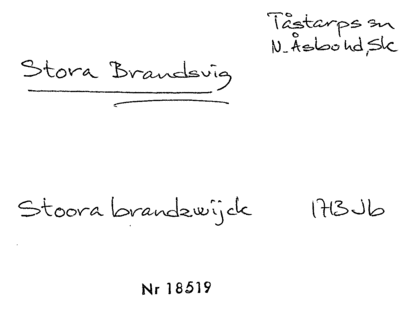 Tåstarps sn
N. Åsbo hd, Sk
Stora Brandsvig
Stoora brandzwijck 1713 Jb
Nr 18519